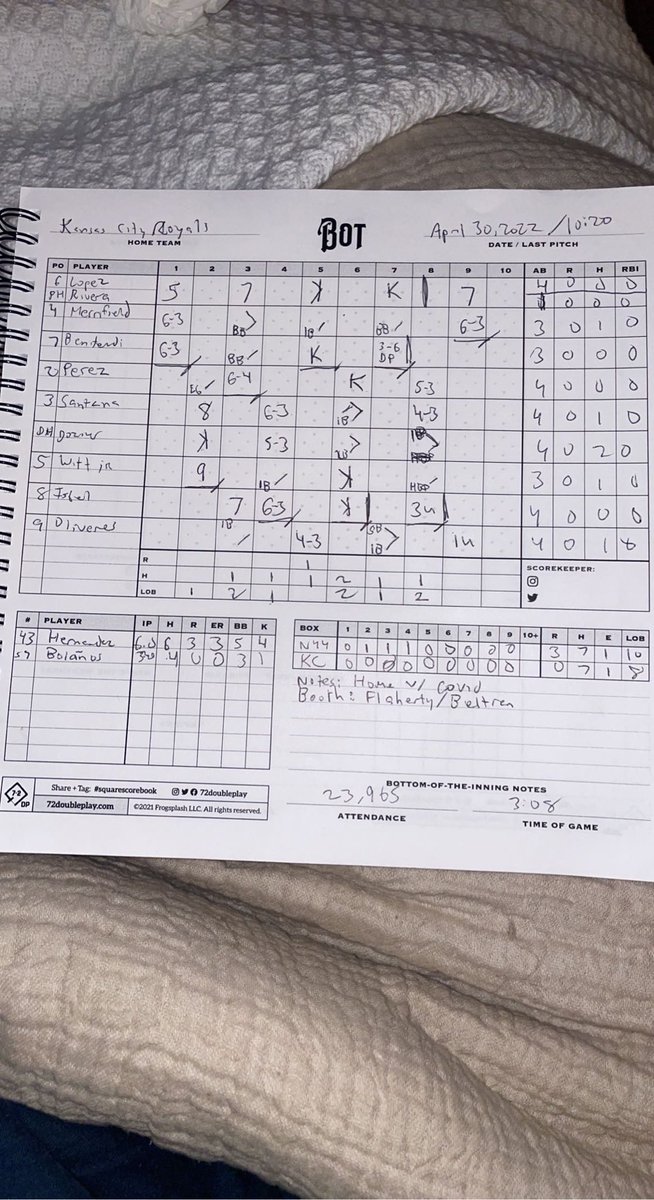 Kansas City Royals BOT April 30, 2022 / 10:20
HOME TEAM DATE / LAST PITCH
PO PLAYER 1 2 3 4 5 6 7 8 9 10 AB R H RBI
6 Lopez 5 7 K K 7 4 0 0 0
PH Rivera 0 0 0
4 Merrifield 6-3 BB 1B BB 6-3 3 0 1 0
7 Bentendi 6-3 BB K 3-6 DP 3 0 0 0
2 Perez 6-4 K 5-3 4 0 0 0
3 Santana 8 6-3 1B 4-3 4 0 1 0
DH K 5-3 1B 4 0 2 0
5 Witt jr 9 1B K HBP 3 0 1 0
8 Isbel 7 6-3 K 3u 4 0 0 0
9 Oliveres 1B 4-3 1B 1u 4 0 1
R 1
H 1 1 1 2 1 1
LOB 1 2 1 2 1 2
SCOREKEEPER:
# PLAYER IP H R ER BB K
43 Hernandez 6.0 6 3 3 5 4
Bolaños 3.0 4 0 0 3 1
BOX 1 2 3 4 5 6 7 8 9 10+ R H E LOB
NYY 0 1 1 1 0 0 0 0 0 3 7 1 10
KC 0 0 0 0 0 0 0 0 0 0 7 1 8
Notes: Home w/ Covid
Booth: Flaherty/Beltren
BOTTOM-OF-THE-INNING NOTES
23,965 3:08
ATTENDANCE TIME OF GAME
7-2 DP
Share + Tag: #squarescorebook 72doubleplay
72doubleplay.com ©2021 Frogsplash LLC. All rights reserved.